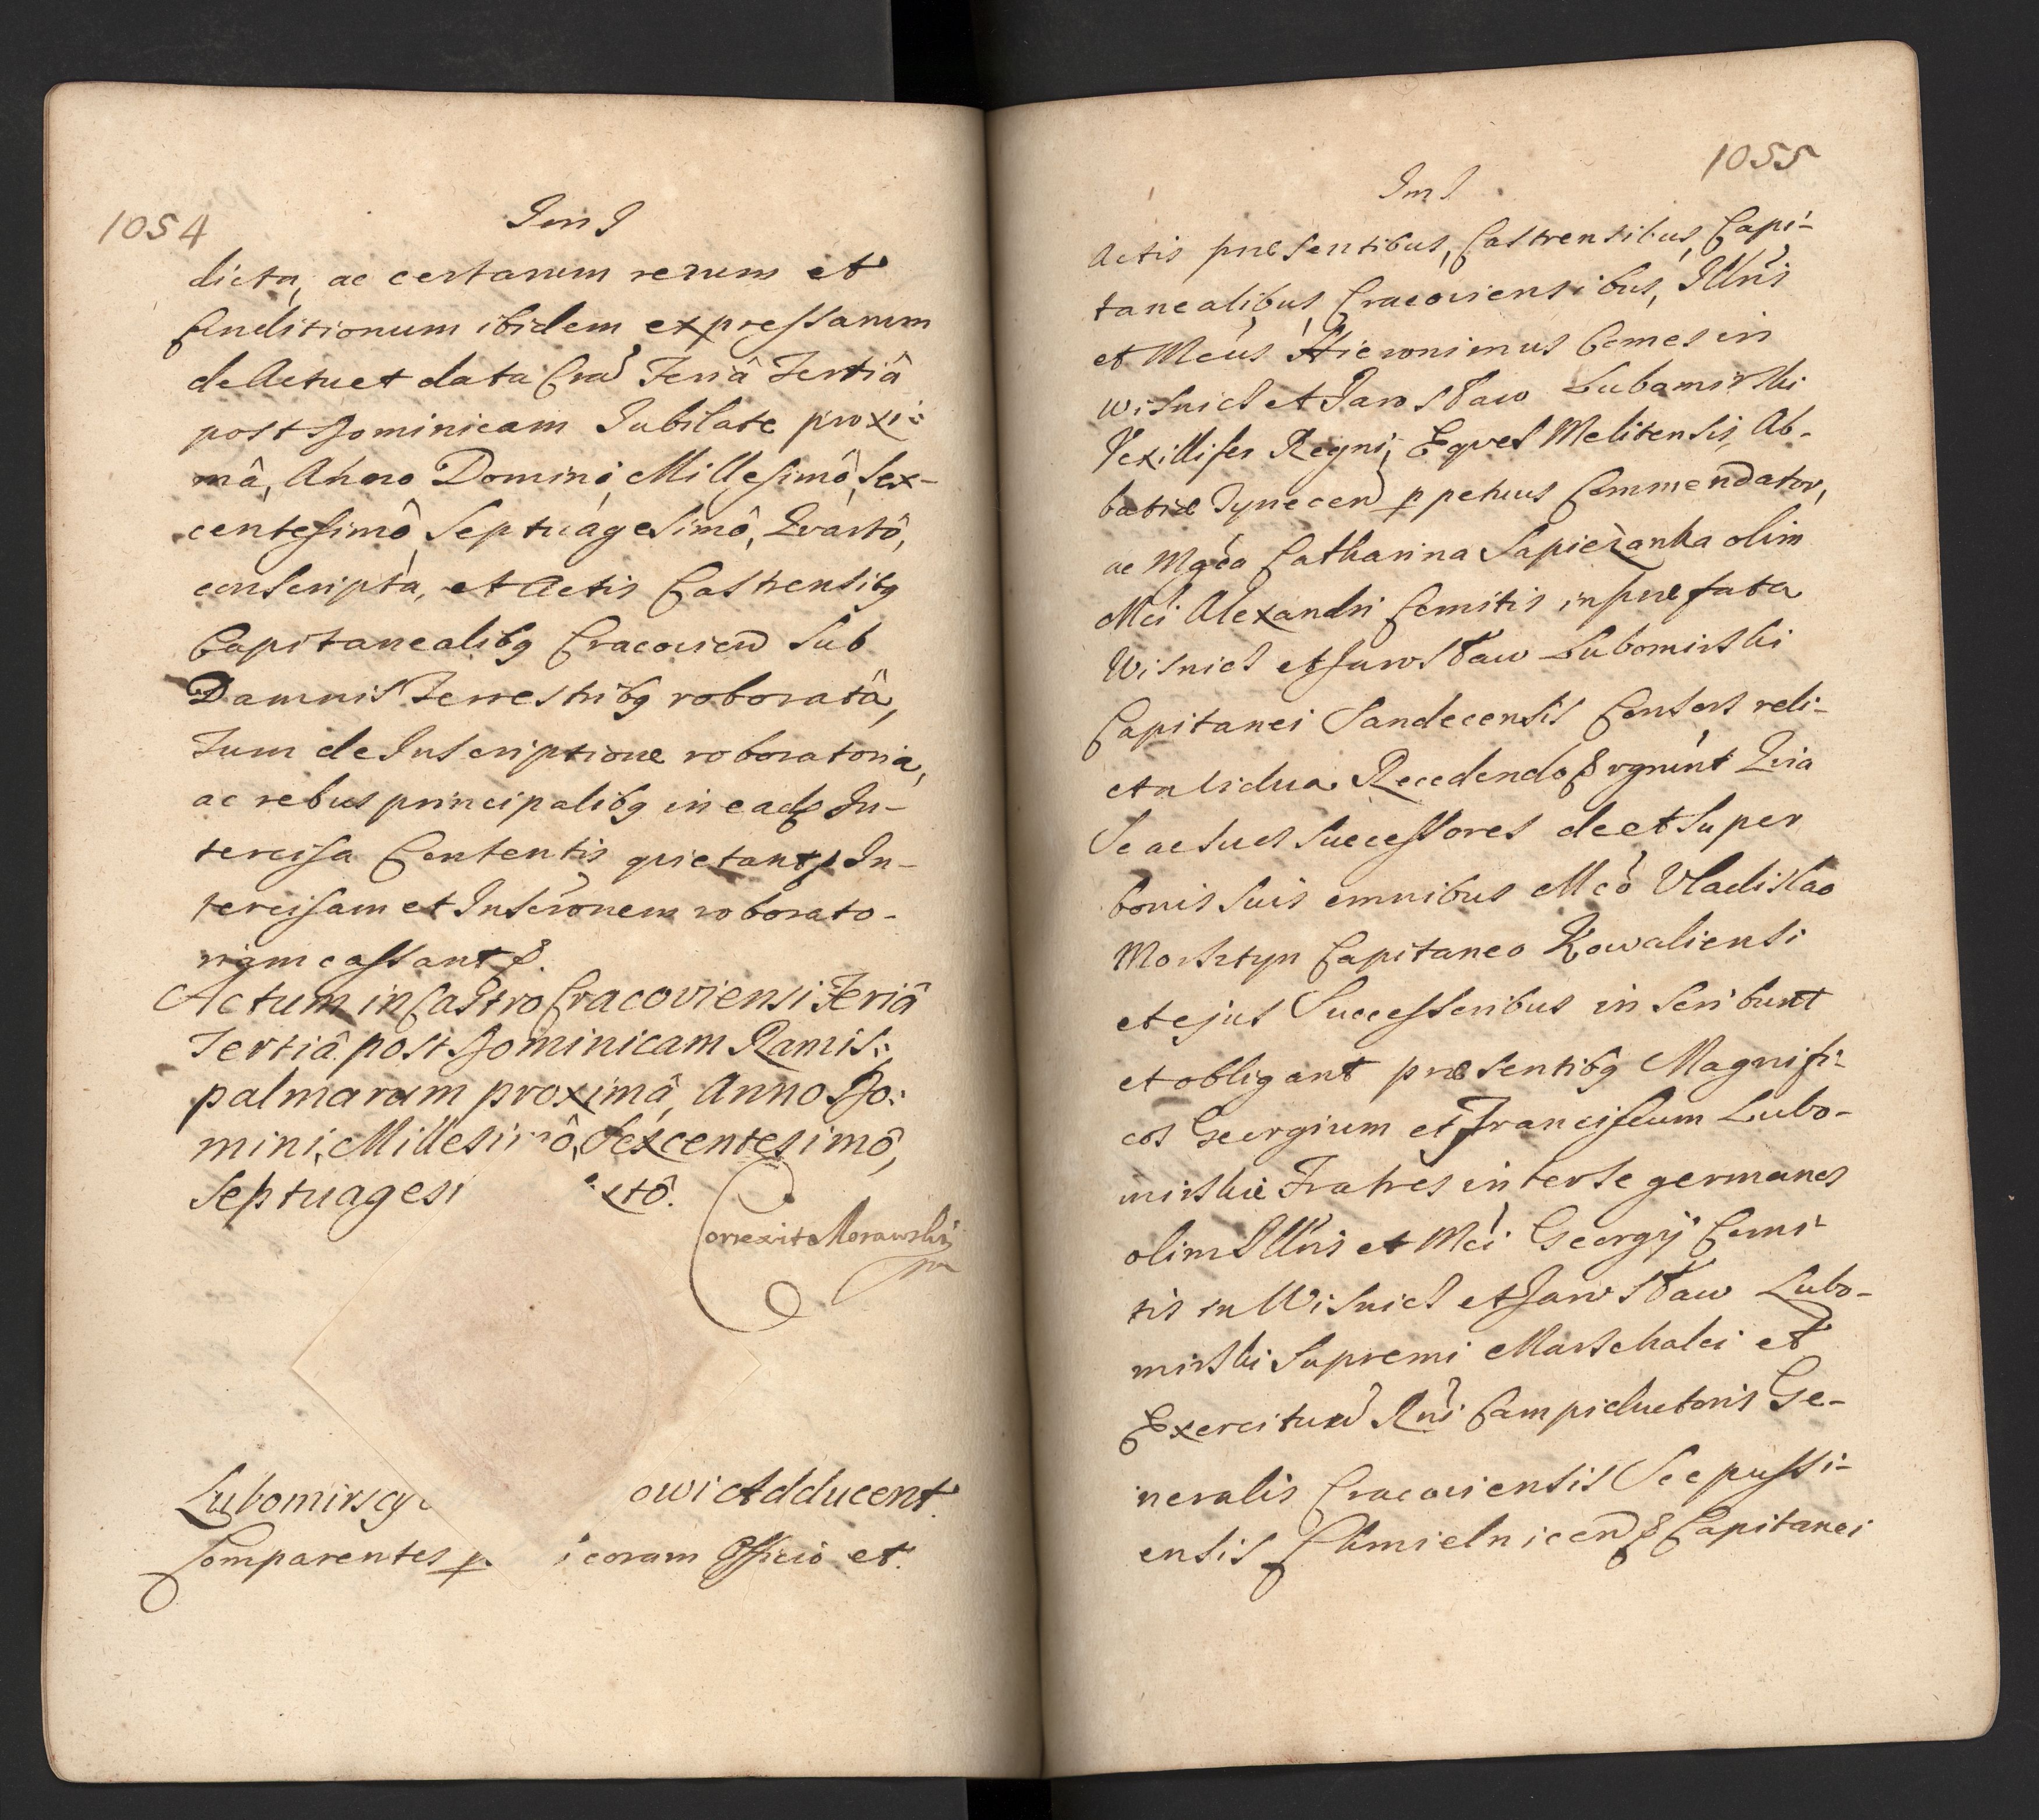 1054
Im J
dicta, ac certarum rerum et
Conditionum ibidem expressarum
de Actu et data Crac Feriâ Tertiâ
post Dominicam Jubilate proxi:
mâ, Anno Domini Millesimô, Sex-
centesimô, Septuagesimô, Qvartô,
conscripta, et Actis Castrensibq
Capitanealibq Cracovien Sub
Damnis Terrestribq roboratâ,
Tum de Inscriptione roboratoria,
ac rebus principalibq in ead In-
tercisa Contentis quietant In-
tercisam et Inscronem roborato-
riam cassant
Actum in Castro Cracoviensi Feriâ
Tertiâ post Dominicam Ramis:
palmarum proximâ, Anno Do:
mini, Millesimô, Sexcentesimô,
Septuagesi xtô.
Correxit Morawski
Lubomirscy owi Adducent.
Comparentes p i coram Officio et
1055
Im J
Actis præsentibus, Castrensibus, Capi-
tanealibus, Cracoviensibus, Illris
et Mcus Hieronimus Comes in
Wisnicz et Jarosław Lubomirski
Vexillifer Regni, Eqves Melitensis, Ab-
batiæ Tynecen ppetuus Commendator,
ac Mgca Catharina Sapiezanka olim
Mci Alexandri Comitis in præfata
Wisnicz et Jarosław Lubomirski
Capitanei Sandecensis Consors reli-
cta vidua Recedendo rgnunt Qvia
Se ac suos Successores de et super
bonis suis omnibus Mco Vladislao
Morsztyn Capitaneo Kowaliensi
et ejus Successoribus inscribunt
et obligant præsentibq Magnifi-
cos Georgium et Franciscum Lubo-
mirskie Fratres inter se germanos
olim Illris et Mci Georgij Comi-
tis in Wisnicz et Jarosław Lubo-
mirski Supremi Marschalci et
Exercituu Rni Campiductoris Ge-
neralis Cracoviensis Scepussi-
ensis Chmielnicen Capitanei